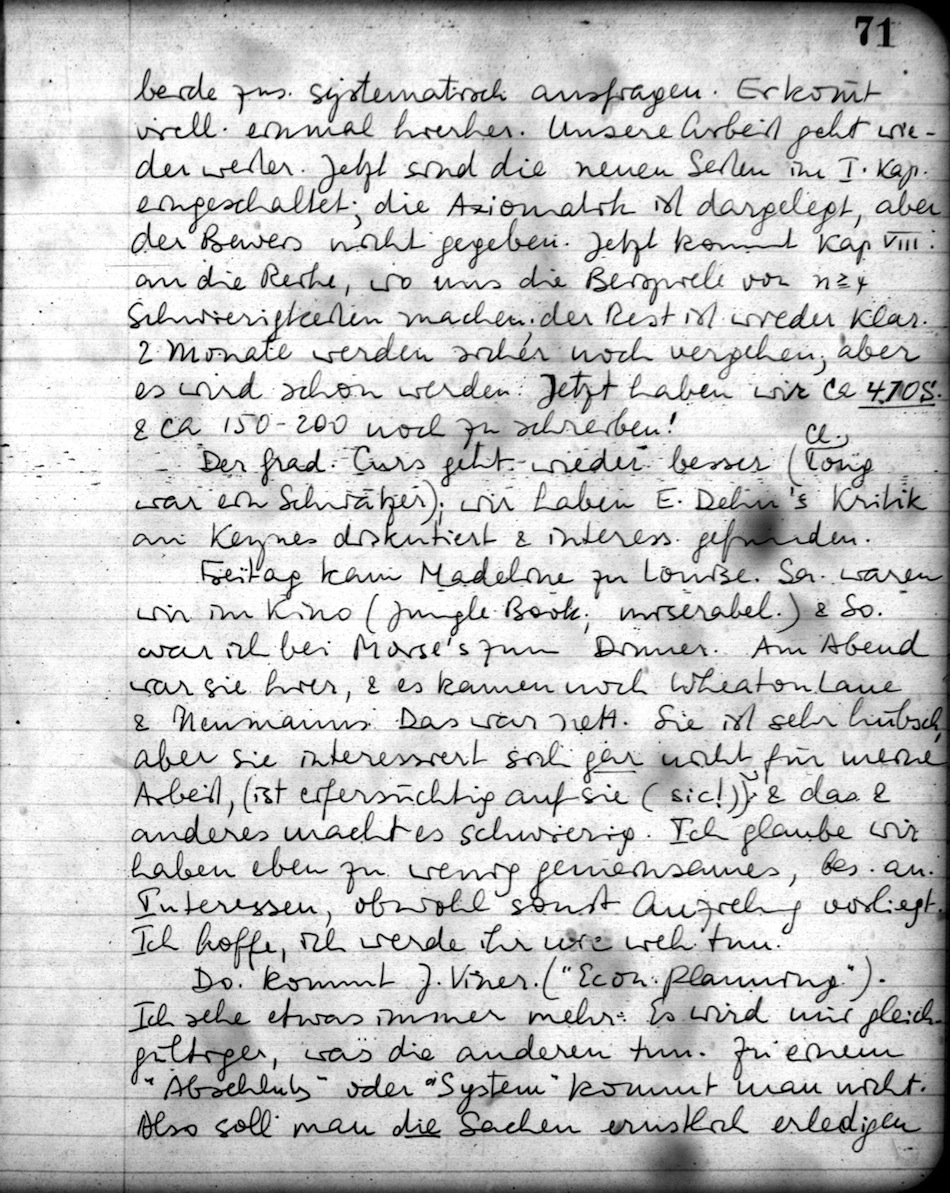 71
beide zus. systematisch ausfragen. Er kom̄t
viell. einmal hierher. Unsere Arbeit geht wie-
der weiter. Jetzt sind die neuen Seiten im I. Kap.
eingeschaltet; die Axiomatik ist dargelegt, aber
der Beweis nicht gegeben. Jetzt kommt Kap VIII.
an die Reihe, wo uns die Beispiele von n≥4
Schwierigkeiten machen; der Rest ist wieder klar.
2 Monate werden sicher noch vergehen, aber
es wird schon werden. Jetzt haben wir ca 470S.
& ca 150-200 noch zu schreiben!
Der grad. Curs geht wieder besser (Cl. Long
war ein Schwätzer); wir haben E. Dehn's Kritik
an Keynes diskutiert & interess. gefunden.
Freitag kam Madeline zu Louise. Sa. waren
wir im Kino (Jungle Book; miserabel.) & So.
war ich bei Morse's zum Dinner. Am Abend
war sie hier, & es kamen noch Wheaton Lane
& Neumanns. Das war nett. Sie ist sehr hübsch,
aber sie interessiert sich gar nicht für meine
Arbeit, (ist eifersüchtig auf sie (sic!)); & das &
anderes macht es schwierig. Ich glaube wir
haben eben zu wenig gemeinsames, bes. an.
Interessen, obwohl sonst Anziehung vorliegt.
Ich hoffe, ich werde ihr nie weh tun.
Do. kommt J. Viner. ("Econ. planning").
Ich sehe etwas immer mehr: Es wird mir gleich-
gültiger, was die anderen tun. Zu einem
"Abschluss" oder "System" kommt man nicht.
Also soll man die Sachen ernstlich erledigen